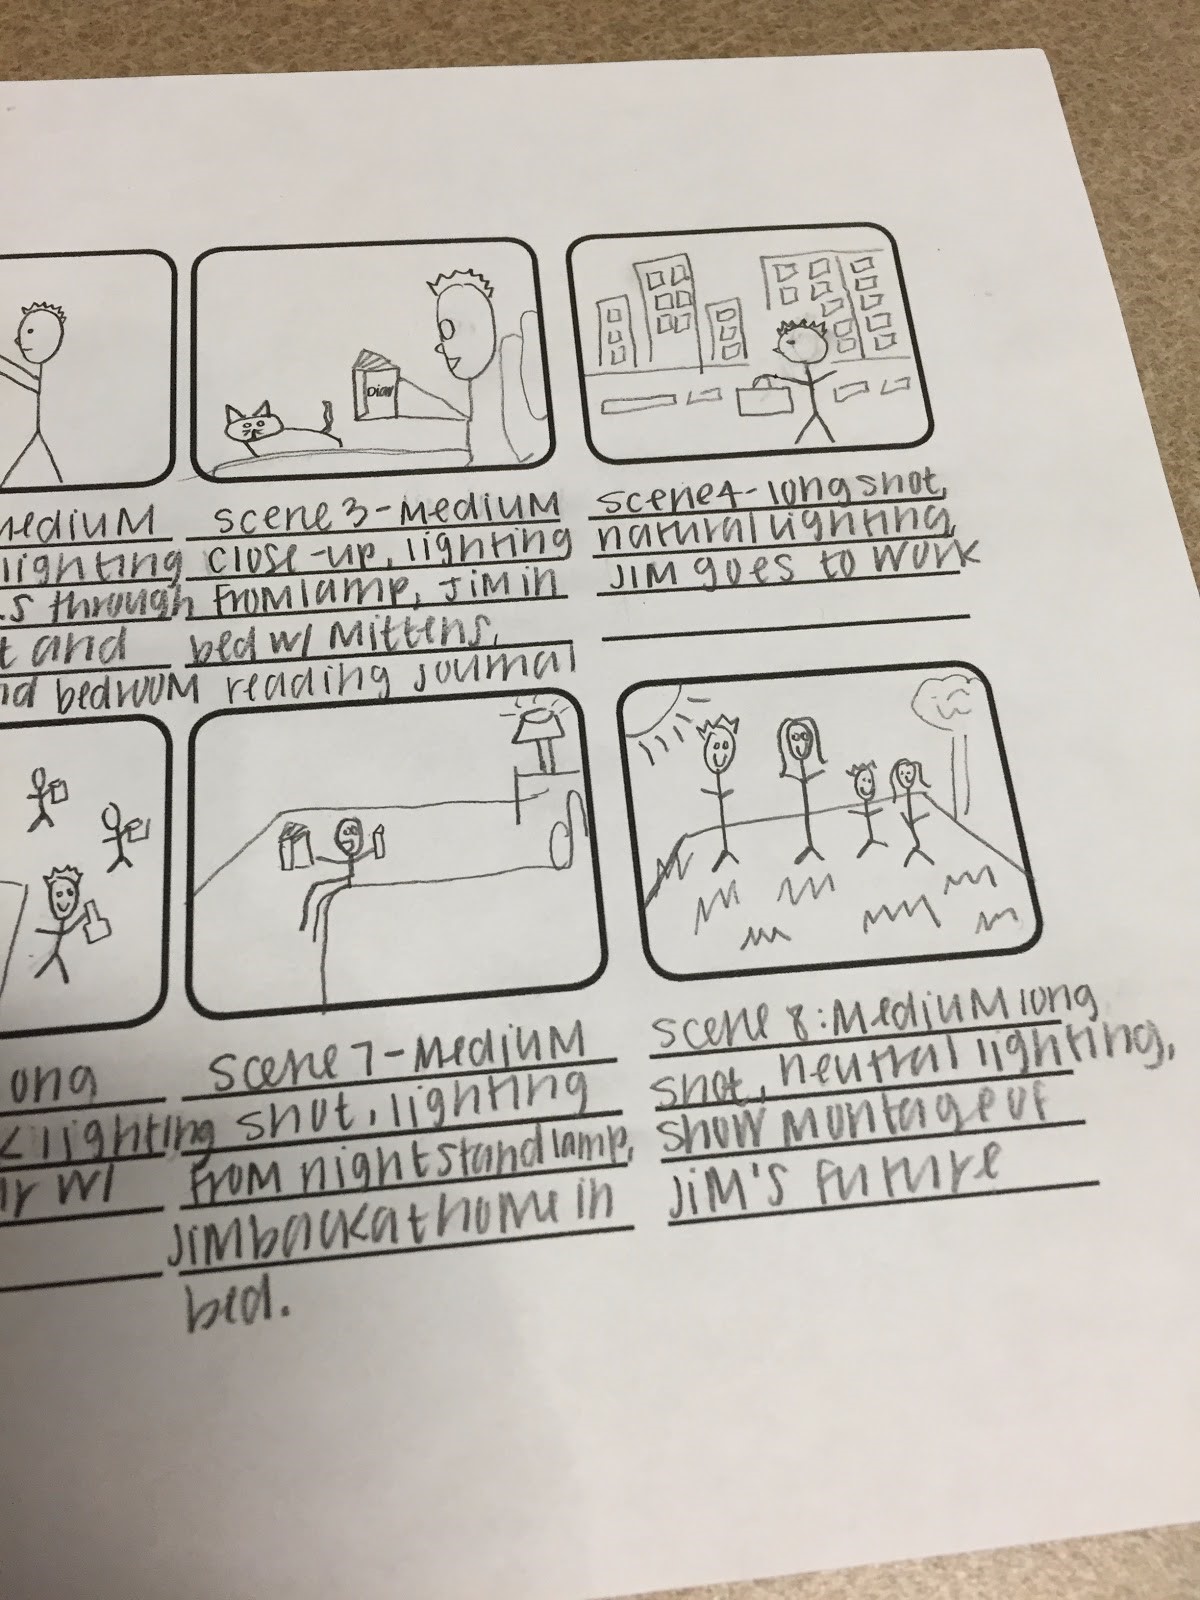 Diary
medium
lighting
through
and
bedroom
scene 3 - medium
close-up, lighting
from lamp, Jim in
bed w/ Mittens,
reading journal
scene 4 - long shot,
natural lighting,
Jim goes to work
lighting
w/
scene 7 - medium
shot, lighting
from nightstand lamp,
Jim back at home in
bed.
scene 8: Medium long
shot, neutral lighting,
show montage of
Jim's future